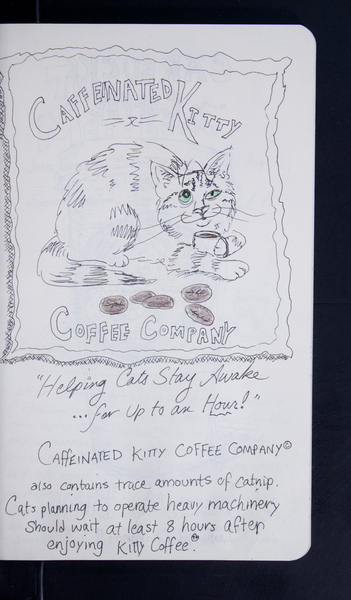 CAFFEINATED KITTY
COFFEE COMPANY
"Helping Cats Stay Awake
...for up to an Hour!"
CAFFEINATED KITTY COFFEE COMPANY©
also contains trace amounts of catnip.
Cats planning to operate heavy machinery
Should wait at least 8 hours after
enjoying Kitty Coffee.